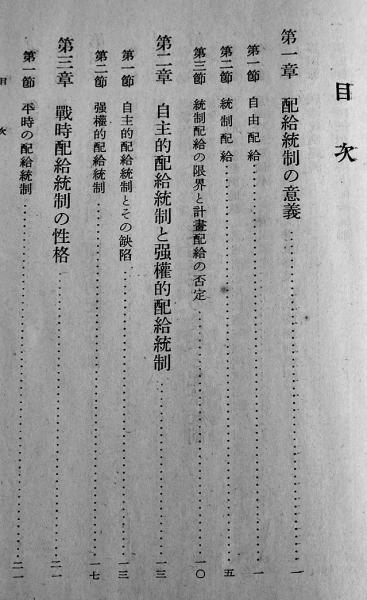 目次
第一章 配給統制の意義……一
第一節 自由配給……一
第二節 統制配給……五
第三節 統制配給の限界と計畫配給の否定……一〇
第二章 自主的配給統制と强權的配給統制……一三
第一節 自主的配給統制とその缺陷……一三
第二節 强權的配給統制……一七
第三章 戰時配給統制の性格……二一
第一節 平時の配給統制……二一
目次